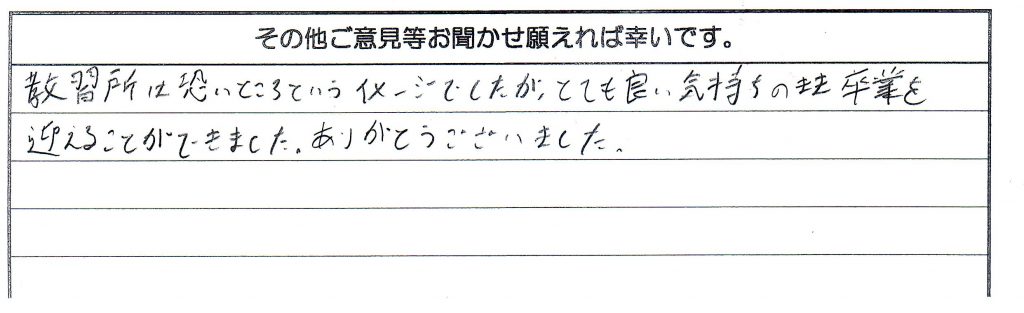 その他ご意見等お聞かせ願えれば幸いです。
教習所は恐いところというイメージでしたが、とても良い気持ちのまま卒業を
迎えることができました。ありがとうございました。